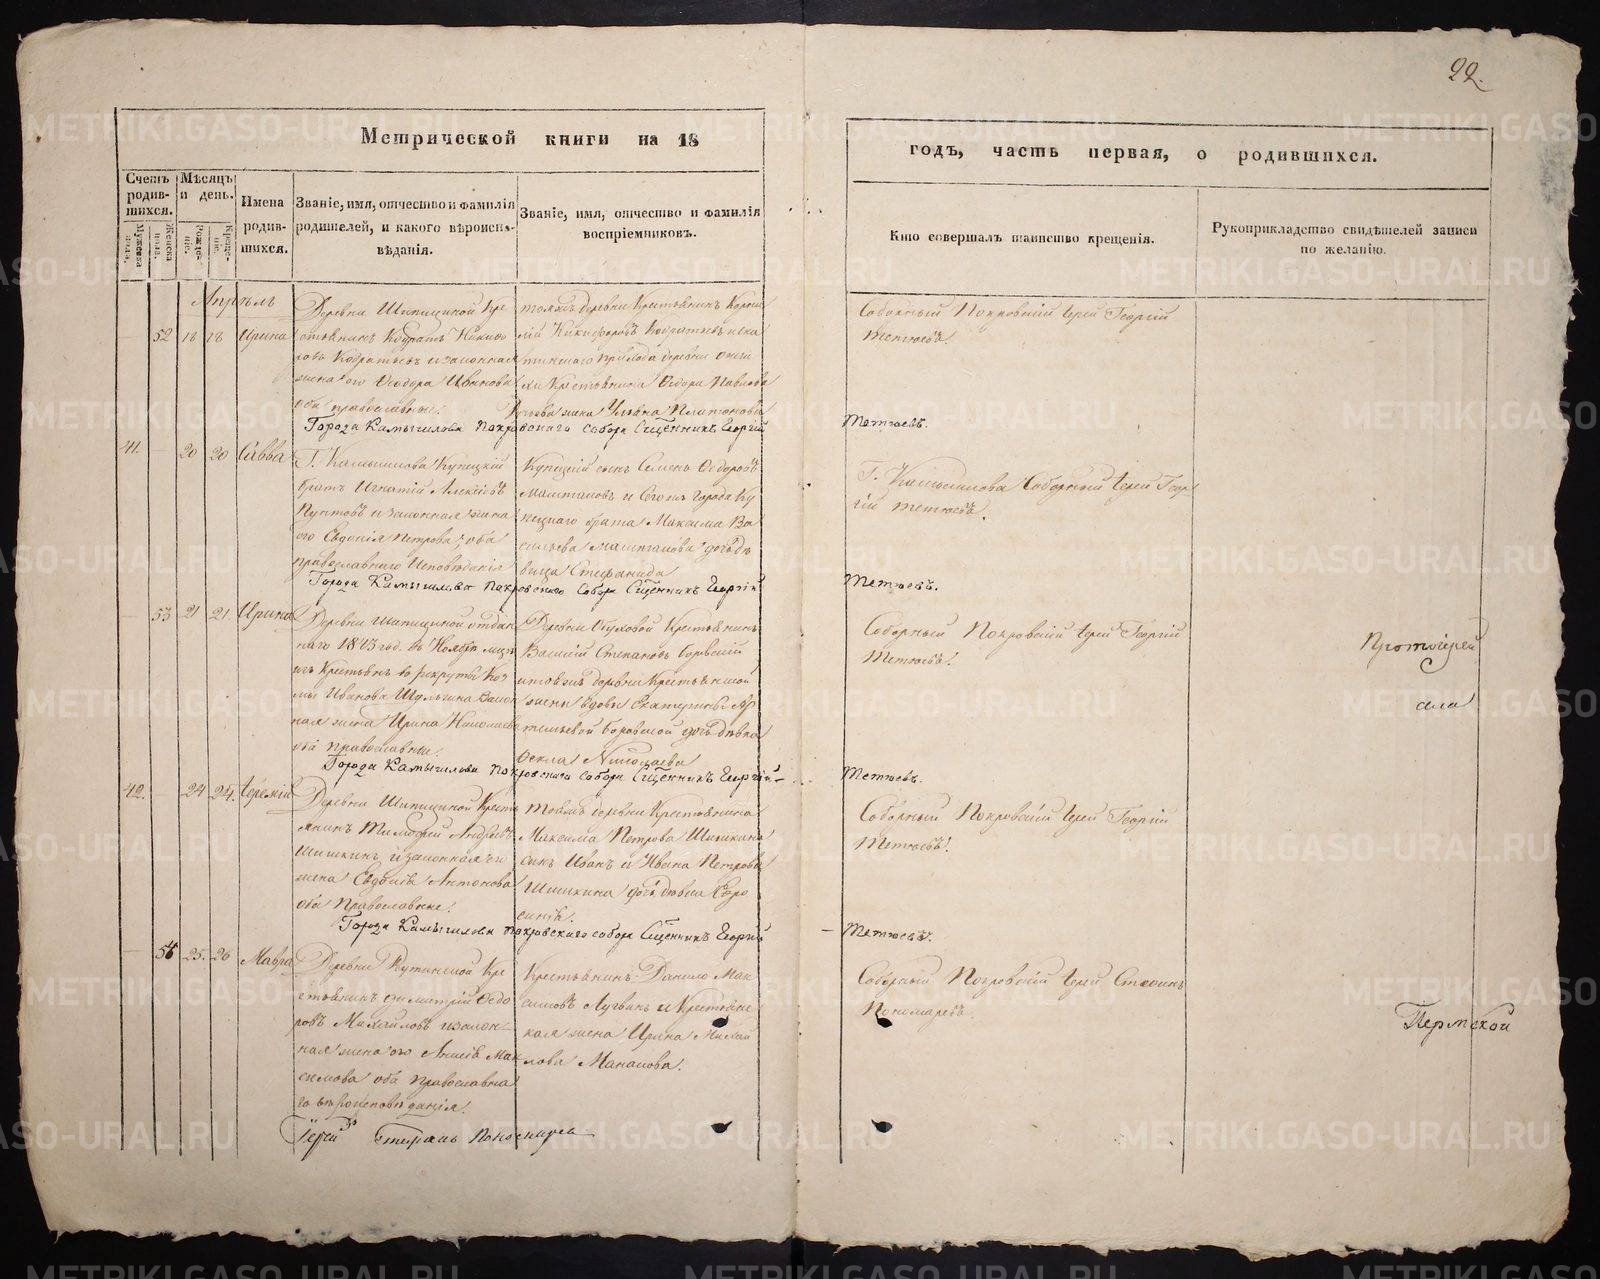 22.
Метрической книги на 18
годъ, часть первая, о родившихся.
Счетъ родив-шихся.
Мѣсяцъ и день.
Имена родив-шихся.
Званіе, имя, отчество и фамилія родителей, и какого вѣроиспо-вѣданія.
Званіе, имя, отчество и фамилія воспріемниковъ.
Кто совершалъ таинство крещенія.
Рукоприкладство свидѣтелей записи по желанію.
Мужеска пола.
Женска пола.
Рожде-ніе.
Креще-ніе.
Апрѣль
52 18 18 Ирина
Деревни Шипициной Кре
стьянинъ Кодратъ Никифо
ровъ Кодратьевъ и законная
жена его Ѳеодора Иванова
оба православные.
тояжъ деревни Крестьянинъ Корни
лій Никифоровъ Кодратьевъ и
Крестьянина Ѳедора Павлова
жена Ульяна Платонова
Соборный Покровскій Іерей Георгій
Тетюевъ.
Города Камышлова Покровскаго собора Сщенникъ Георгій
Тетюевъ.
41. 20 20 Савва
Г. Камышлова Купецкій
братъ Игнатій Алексѣевъ
и законная жена
его Евдокія Петрова, оба
православнаго исповѣданія
Купецкій сынъ Семенъ Ѳедоровъ
и Сегожъ города Ку
пецкаго брата Максима Ва
сильева дочь дѣ
вица Стефанида
Г. Камышлова Соборный Іерей Геор
гій Тетюевъ.
Города Камышлова Покровскаго Собора Сщенникъ Георгій
Тетюевъ.
53 21 21. Ирина
Деревни Шипициной отдан
наго 1843 год. въ Ноябрѣ мцѣ
изъ Крестьянъ въ рекруты Коз
мы Иванова Шульгина закон
ная жена Ирина Николаева
оба православные.
Деревни Обуховой Крестьянинъ
Василій Степановъ Боровской
и тояжъ деревни Крестьянской
жены вдовы Екатерины Ар
темьевой Боровской дочь дѣвка
Ѳекла Николаева
Соборный Покровскій Іерей Георгій
Тетюевъ.
Протоіерей
села
Города Камышлова Покровскаго собора Сщенникъ Георгій
Тетюевъ.
42. 24 24. Іеремій
Деревни Шипициной Кресть
янинъ Тимофей Андреевъ
Шишкинъ, и законная его
жена Евдокія Антонова
оба Православные.
Тояжъ деревни Крестьянина
Максима Петрова Шишкина
сынъ Иванъ и Ивана Петрова
Шишкина дочь дѣвка Ефро
синія.
Соборный Покровскій Іерей Георгій
Тетюевъ.
Города Камышлова Покровскаго собора Сщенникъ Георгій
Тетюевъ.
54 25. 26 Мавра
Деревни Кре
стьянинъ Димитрій Ѳедо
ровъ Михайловъ и закон
ная жена его Анисія Мак
симова оба православна
го вѣроисповѣданія.
Крестьянинъ Данило Мак
симовъ и Крестьян
ская жена Ирина Михай
лова Манакова.
Соборный Покровскій Іерей Стефанъ
Пономаревъ.
Пермской
Іерей Стефанъ Пономаревъ
METRIKI.GASO-URAL.RU